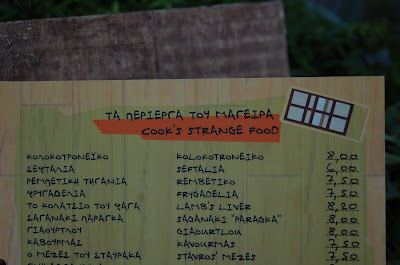 ΤΑ ΠΕΡΙΕΡΓΑ ΤΟΥ ΜΑΓΕΙΡΑ
COOK'S STRANGE FOOD
ΚΟΛΟΚΟΤΡΟΝΕΙΚΟ KOLOKOTRONEIKO 8,00
ΣΕΥΤΑΛΙΑ SEFTALIA 6,00
ΡΕΜΠΕΤΙΚΗ ΤΗΓΑΝΙΑ REMBETIKO 7,50
ΦΡΥΓΑΔΕΛΙΑ FRYGADELIA 7,50
ΤΟ ΚΟΛΑΤΣΙΟ ΤΟΥ ΨΑΓΑ LAMB'S LIVER 8,20
ΣΑΓΑΝΑΚΙ ΠΑΡΑΓΚΑ SAGANAKI "PARAGKA" 8,00
ΓΙΑΟΥΡΤΛΟΥ GIAOURTLOU 8,00
ΚΑΒΟΥΡΜΑΣ KAVOURMAS 7,50
Ο ΜΕΖΕΣ ΤΟΥ ΣΤΑΥΡΑΚΑ STAVROS' MEZES 7,50